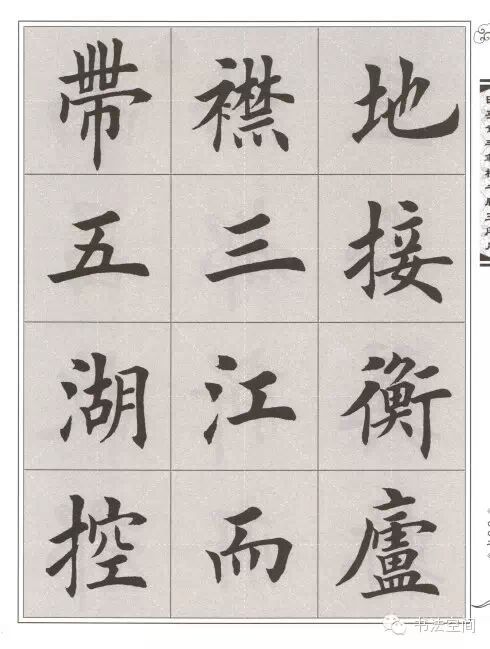 地接衡廬
襟三江而
帶五湖控
书法空间